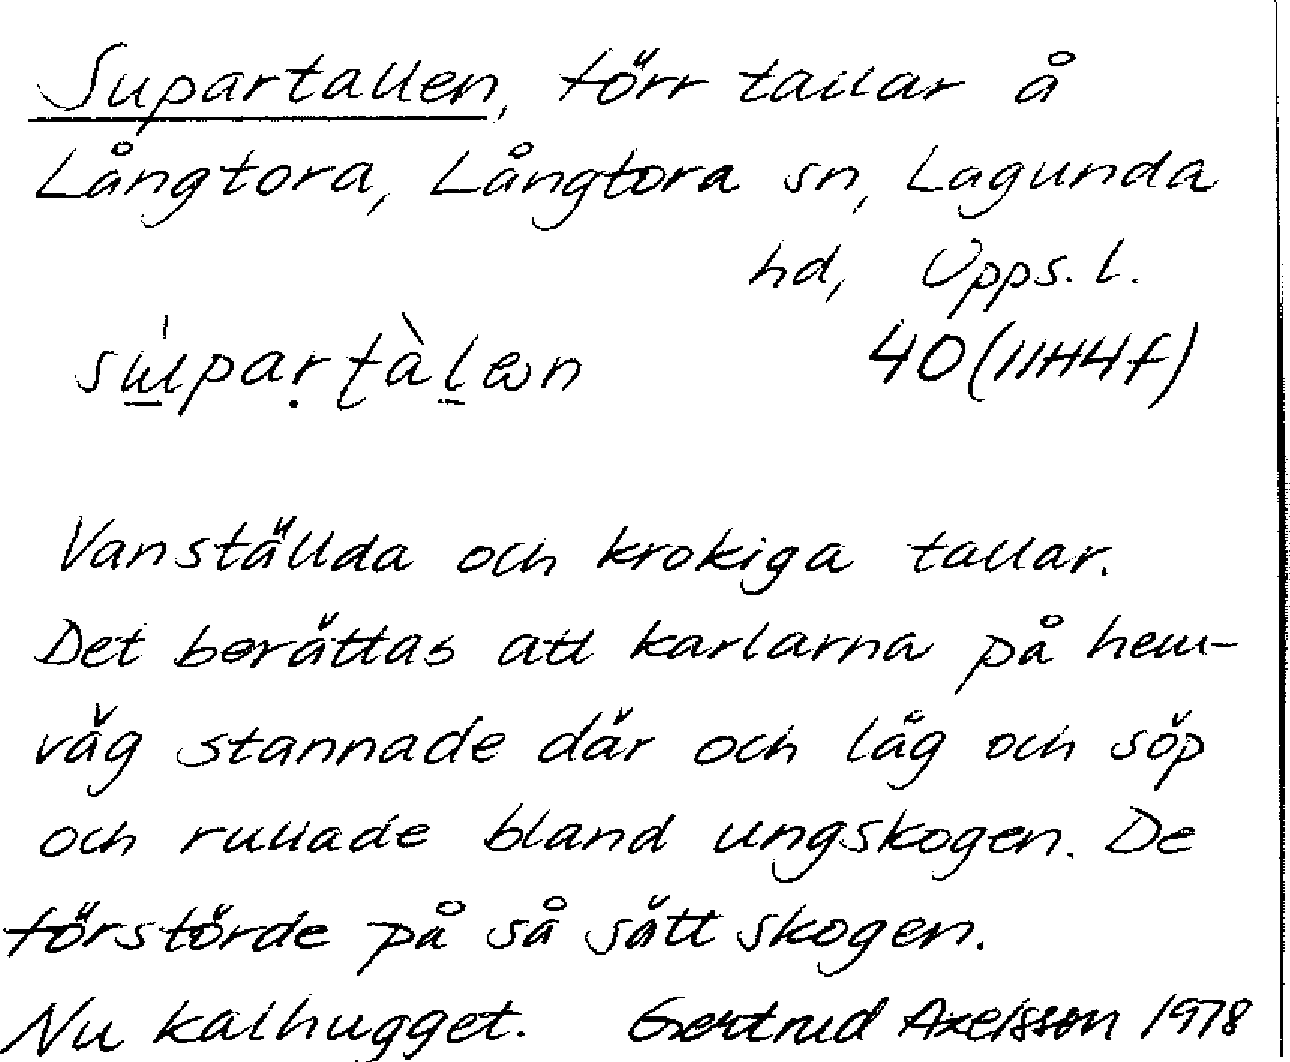 Supartallen, förr tallar å
Långtora, Långtora sn, Lagunda
hd, Upps. l.
40(11H4f)
Vanställda och krokiga tallar.
Det berättas att karlarna på hem-
väg stannade där och låg och söp
och rullade bland ungskogen. De
förstörde på så sätt skogen.
Nu kalhugget. Gertrud Axelsson 1978